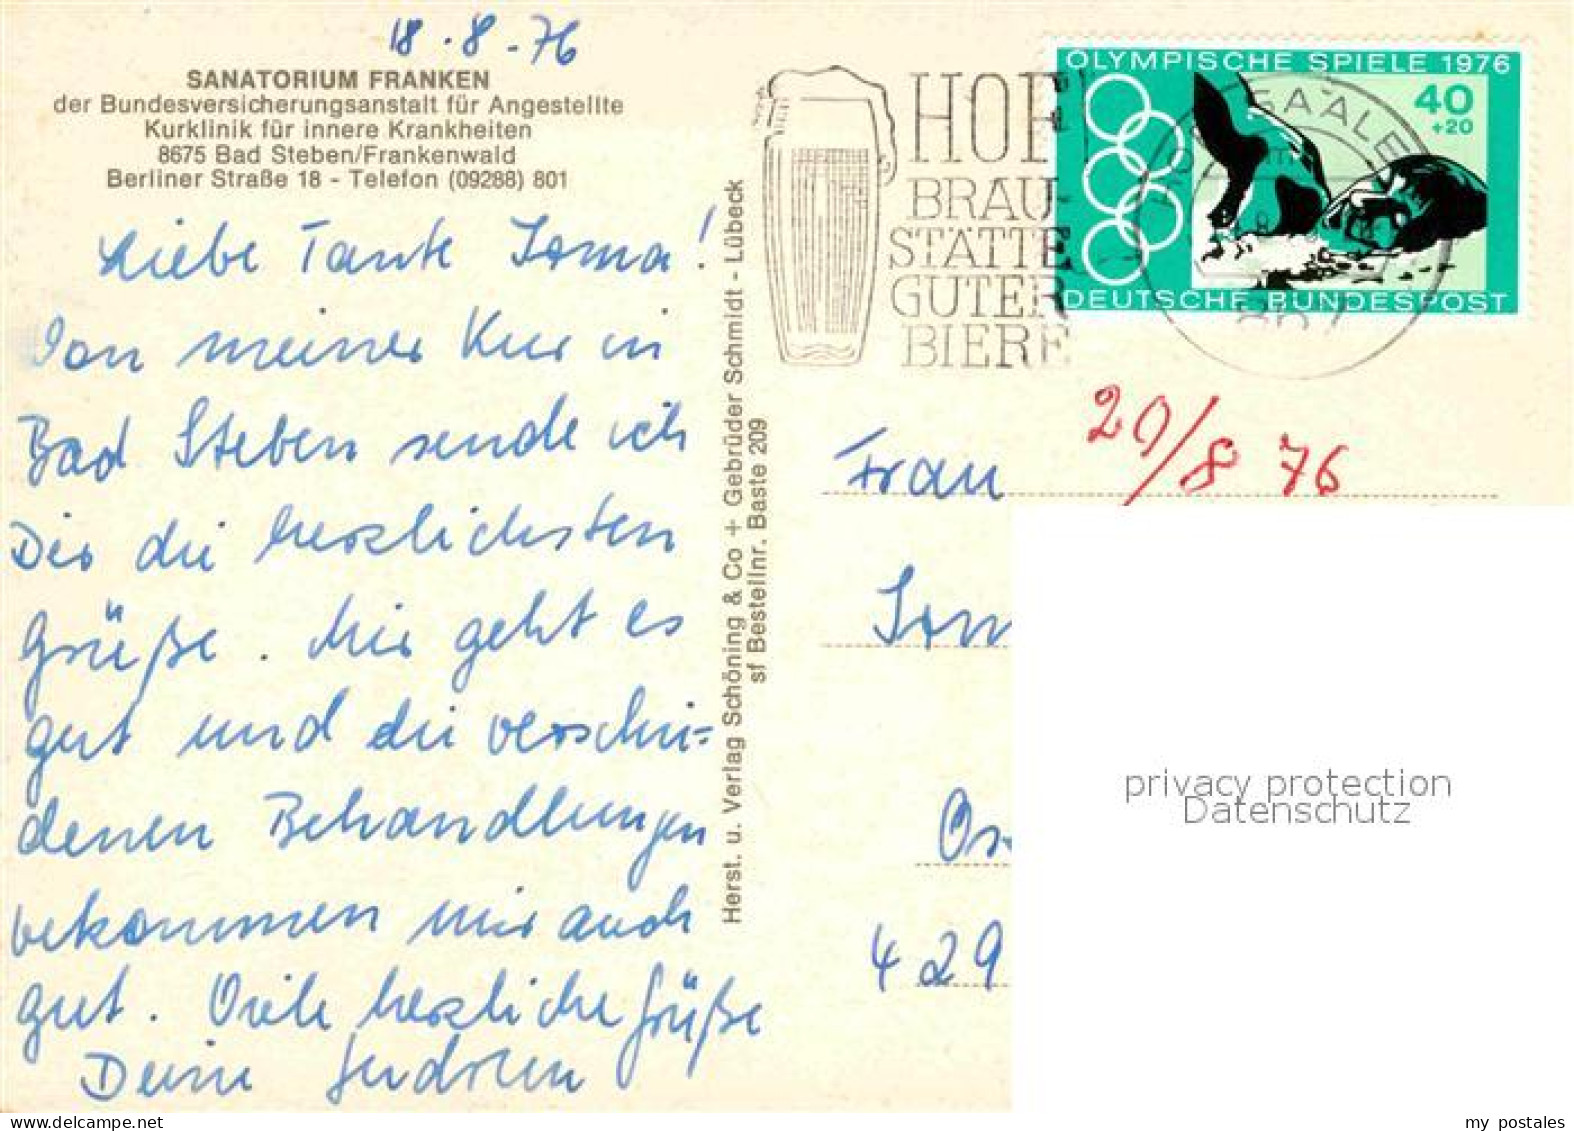 18.8.-76
SANATORIUM FRANKEN
der Bundesversicherungsanstalt für Angestellte
Kurklinik für innere Krankheiten
8675 Bad Steben/Frankenwald
Berliner Straße 18 - Telefon (09288) 801
Liebe Tante Irma!
Von meiner Kur in
Bad Steben sende ich
Dir die herzlichsten
Grüße. Mir geht es
gut und die verschie=
denen Behandlungen
bekommen mir auch
gut. Viele herzliche Grüße
Deine Gudrun
Herst. u. Verlag Schöning & Co + Gebrüder Schmidt - Lübeck
sf Bestellnr. Baste 209
HOF
BRAU-
STÄTTE
GUTER
BIERE
SAALE
OLYMPISCHE SPIELE 1976
40
+20
DEUTSCHE BUNDESPOST
29/8 76
Frau
Irm
429
privacy protection
Datenschutz
my postales
www.delcampe.net